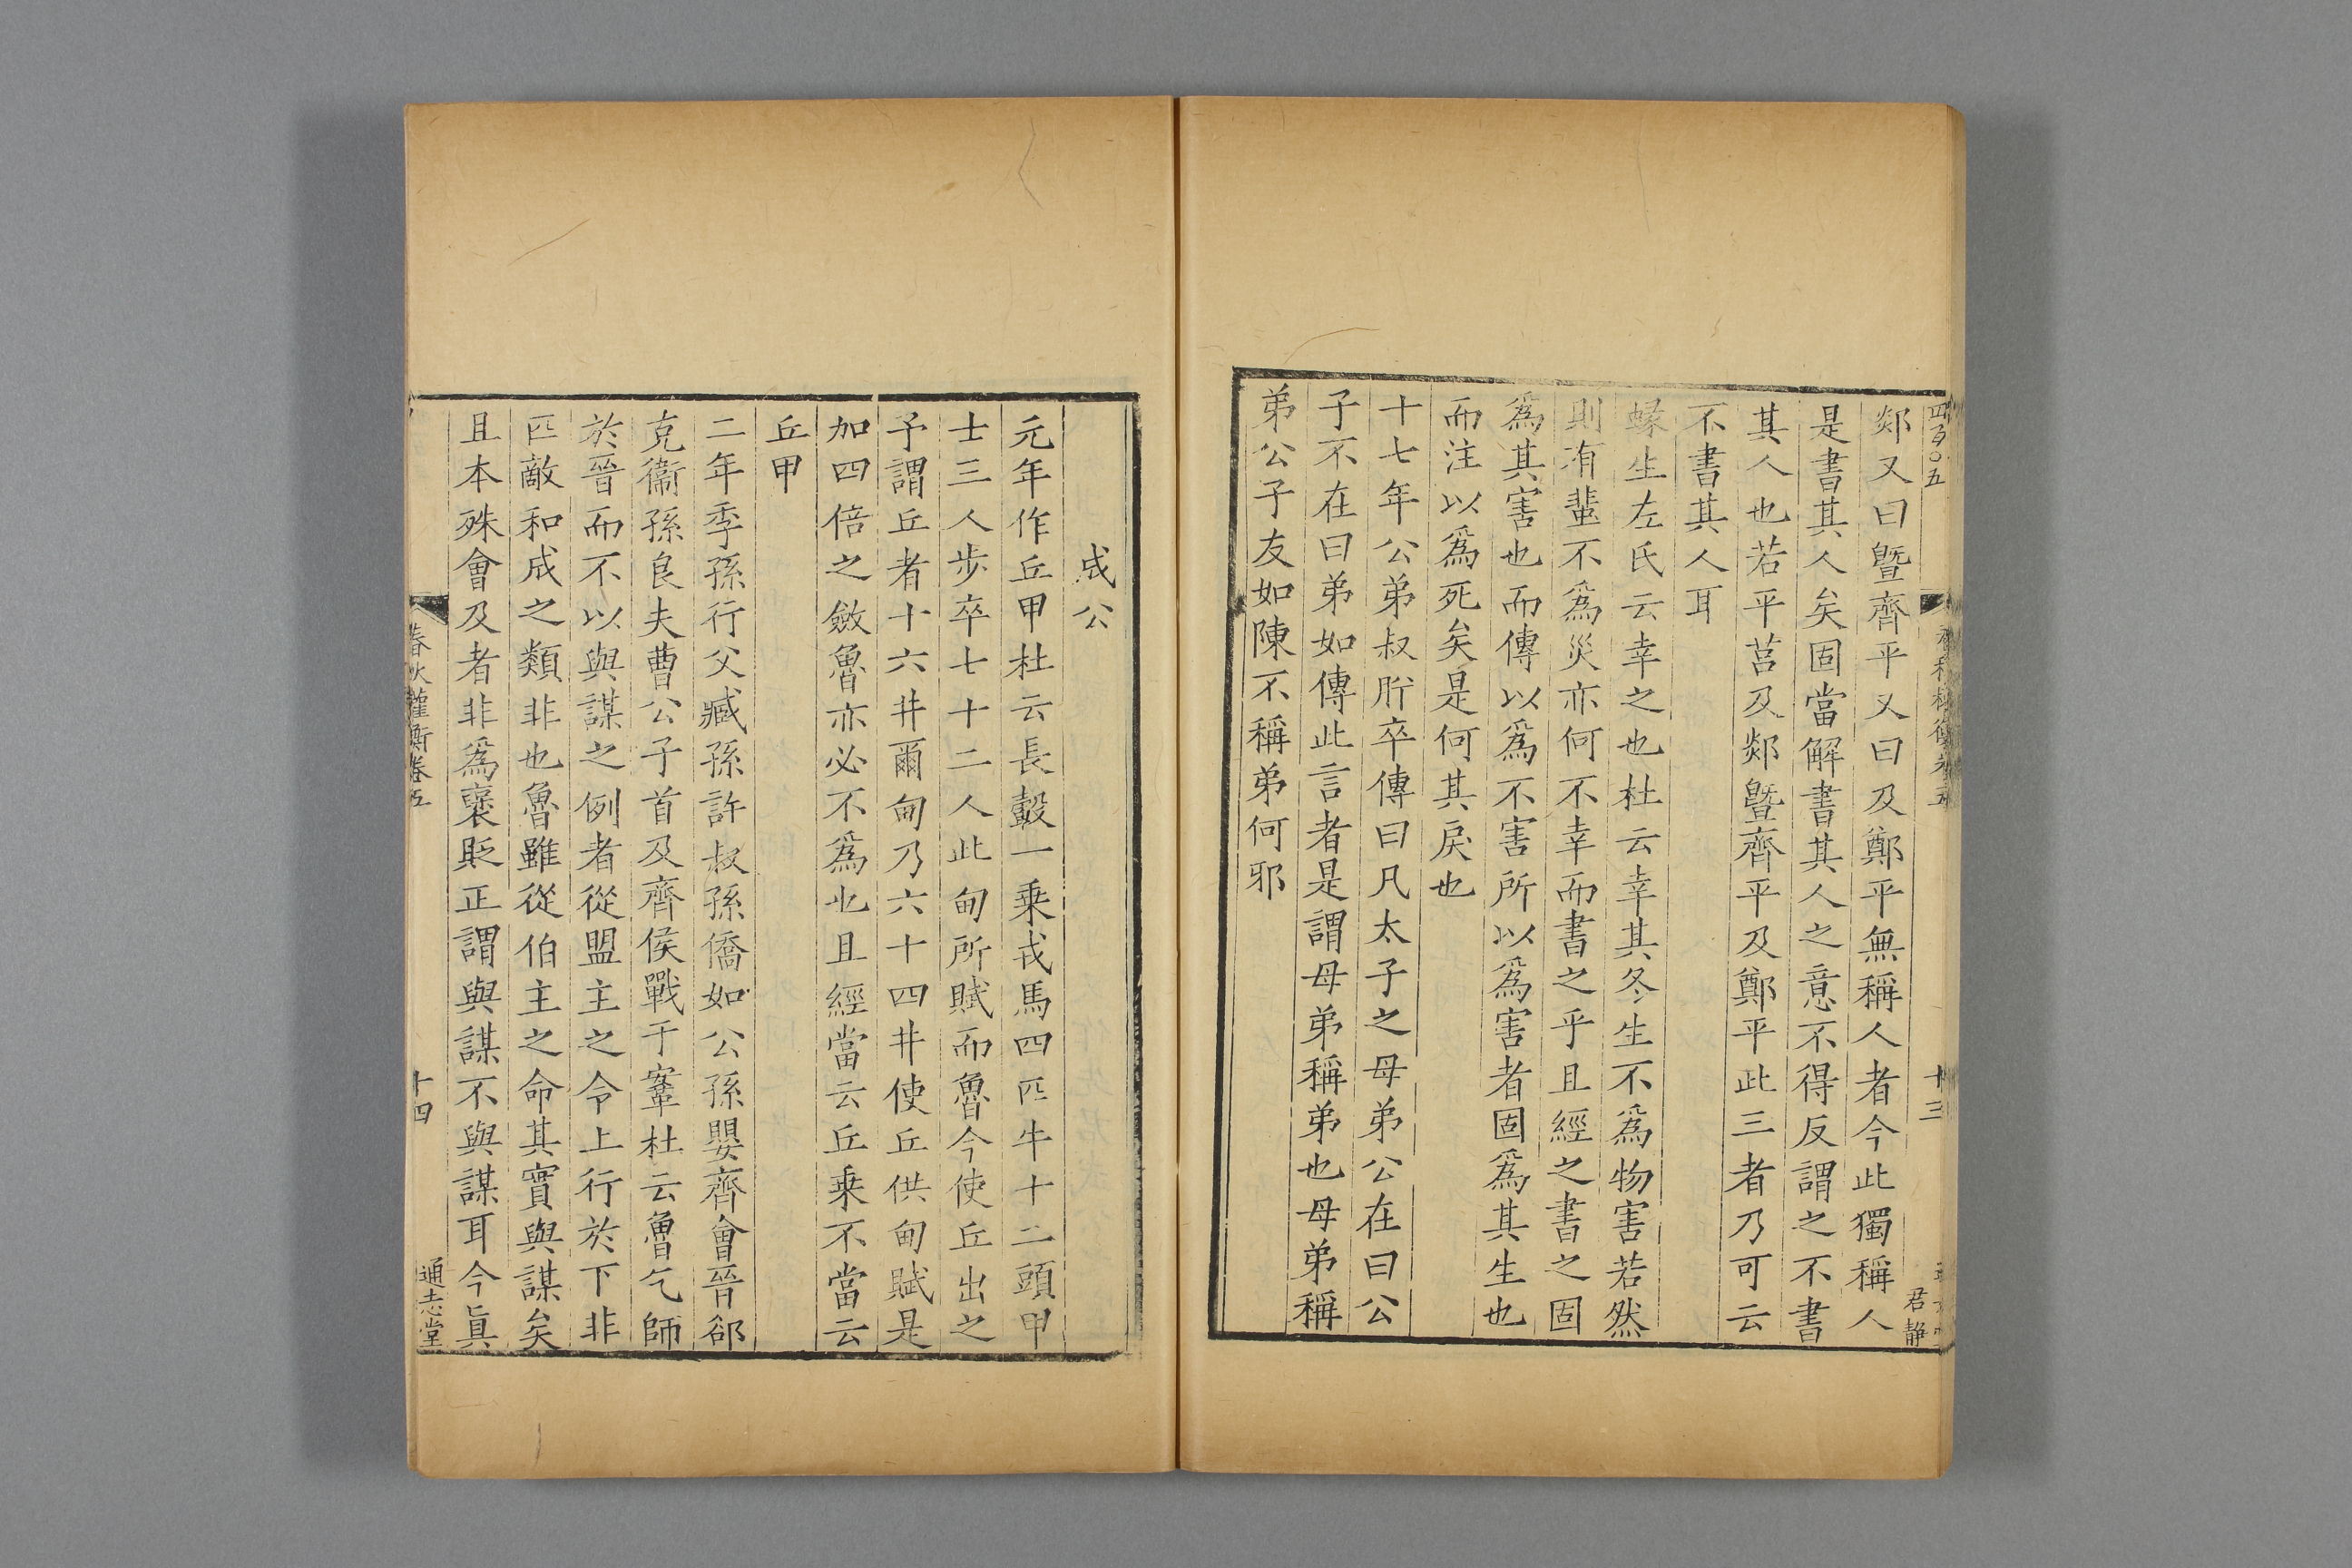 四百〇五
十三
君静
郯又曰曁齊平又曰及鄭平無稱人者今此獨稱人
是書其人矣固當解書其人之意不得反謂之不書
其人也若平莒及郯曁齊平及鄭平此三者乃可云
不書其人耳
蝝生左氏云幸之也杜云幸其冬生不爲物害若然
則有蜚不爲災亦何不幸而書之乎且經之書之固
爲其害也而傳以爲不害所以爲害者固爲其生也
而注以爲死矣是何其戾也
十七年公弟叔肸卒傳曰凡太子之母弟公在曰公
子不在曰弟如傳此言者是謂母弟稱弟也母弟稱
弟公子友如陳不稱弟何邪
成公
元年作丘甲杜云長轂一乗戎馬四匹牛十二頭甲
士三人步卒七十二人此甸所賦而魯今使丘出之
予謂丘者十六井爾甸乃六十四井使丘供甸賦是
加四倍之斂魯亦必不爲也且經當云丘乗不當云
丘甲
二年季孫行父臧孫許叔孫僑如公孫嬰齊會晉郤
克衞孫良夫曹公子首及齊侯戰于鞌杜云魯乞師
於晉而不以與謀之例者從盟主之令上行於下非
匹敵和成之類非也魯雖從伯主之命其實與謀矣
且本殊會及者非爲襃貶正謂與謀不與謀耳今眞
春秋權衡卷五
十四
通志堂